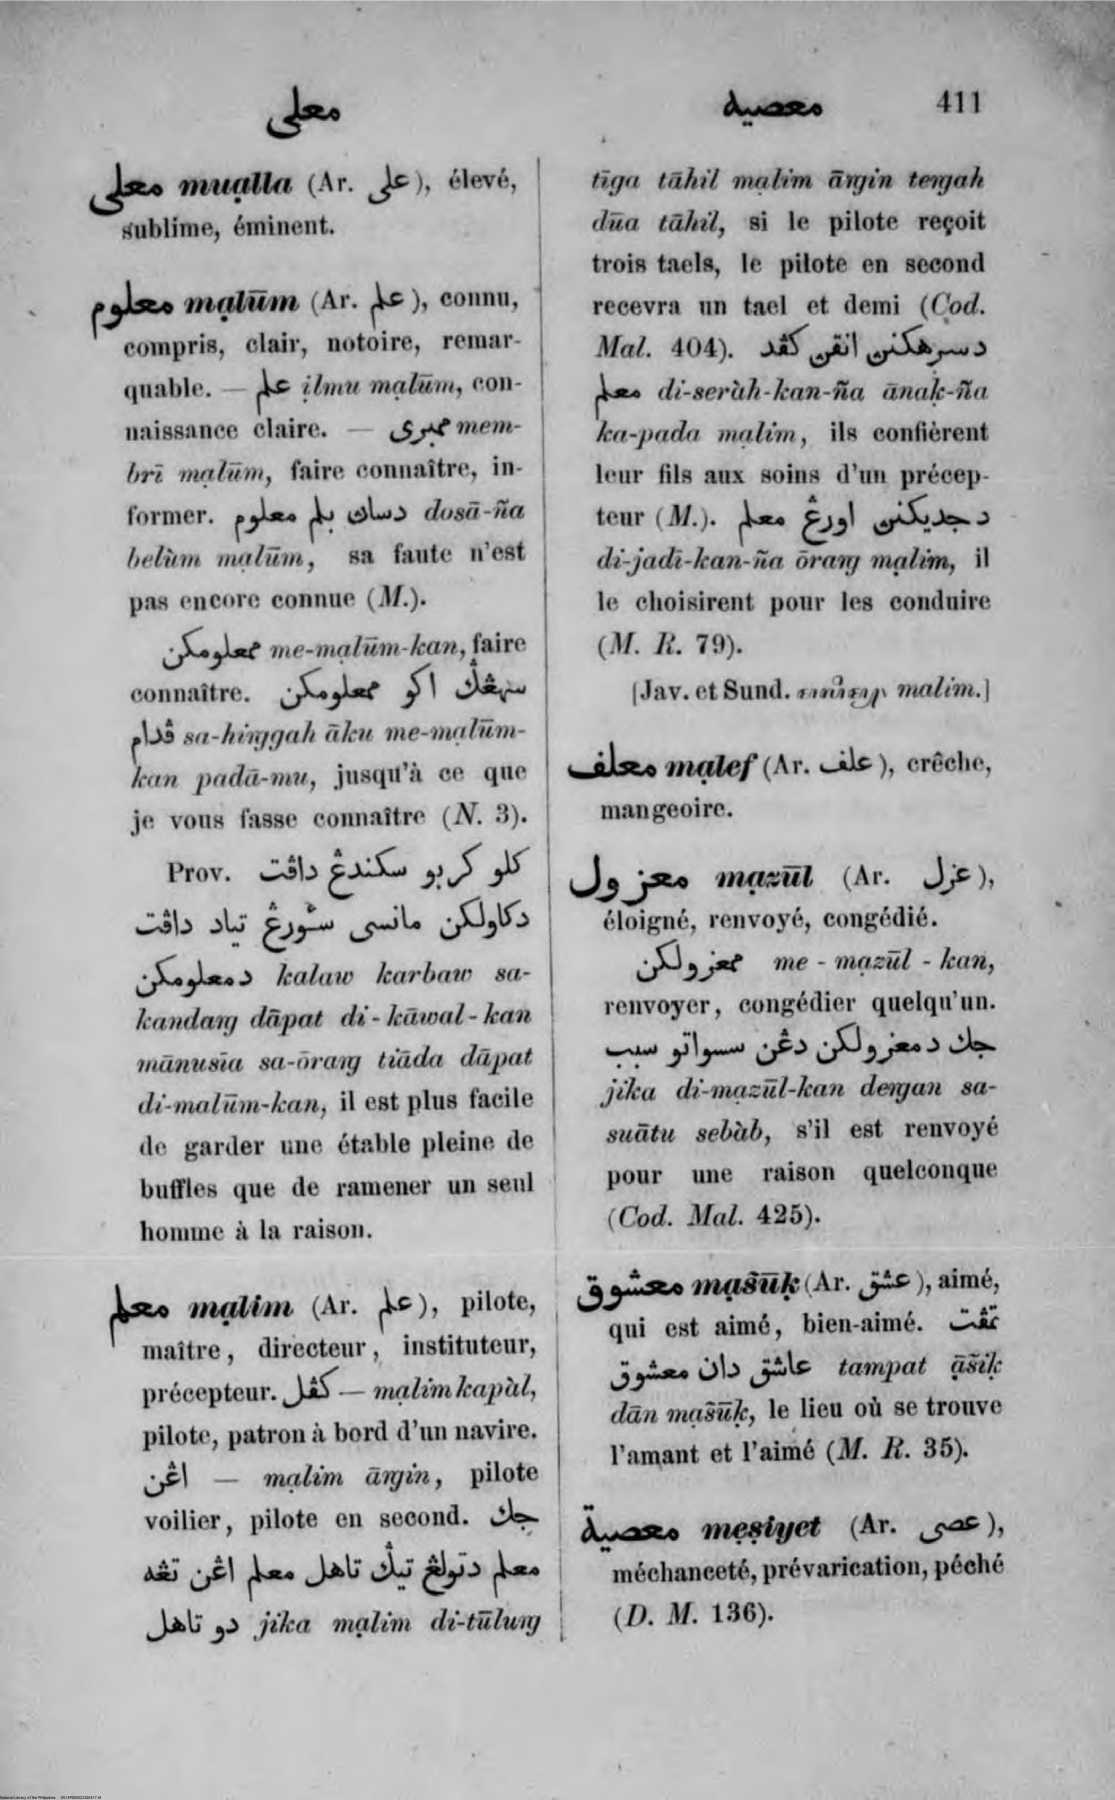 معلى
معصيه
411
معلى muạlla (Ar. على), élevé,
sublime, éminent.
معلوم mạlūm (Ar. علم), connu,
compris, clair, notoire, remar-
quable. — علم ịlmu mạlūm, con-
naissance claire. — ممبرى mem-
brī mạlūm, faire connaître, in-
former. دساڽ بلم معلوم dosā-ña
belùm mạlūm, sa faute n'est
pas encore connue (M.).
ممعلومكن me-mạlūm-kan, faire
connaître. سهڠݢ اكو ممعلومكن
ڤدام sa-hiṅggah āku me-mạlūm-
kan padā-mu, jusqu'à ce que
je vous fasse connaître (N. 3).
Prov. كلو كربو سكندڠ داڤت
دكاولكن مانسى سئورڠ تياد داڤت
دمعلومكن kalaw karbaw sa-
kandaṅg dāpat di-kāwal-kan
mānusīa sa-ōraṅg tiāda dāpat
di-malūm-kan, il est plus facile
de garder une étable pleine de
buffles que de ramener un seul
homme à la raison.
معلم mạlim (Ar. علم), pilote,
maître, directeur, instituteur,
précepteur. كڤل — mạlim kapàl,
pilote, patron à bord d'un navire.
اڠن — mạlim āṅgin, pilote
voilier, pilote en second. جك
معلم دتولڠ تيݢ تاهل معلم اڠن تڠه
دو تاهل jika mạlim di-tūluṅg
tīga tāhil mạlim āṅgin teṅgah
dūa tāhil, si le pilote reçoit
trois taels, le pilote en second
recevra un tael et demi (Cod.
Mal. 404). دسرهكنڽ انقڽ كڤد
معلم di-seràh-kan-ña ānaḳ-ña
ka-pada mạlim, ils confièrent
leur fils aux soins d'un précep-
teur (M.). دجديكنڽ اورڠ معلم
di-jadī-kan-ña ōraṅg mạlim, il
le choisirent pour les conduire
(M. R. 79).
[Jav. et Sund. malim.]
معلف mạlef (Ar. علف), crêche,
mangeoire.
معزول mạzūl (Ar. عزل),
éloigné, renvoyé, congédié.
ممعزولكن me-mạzūl-kan,
renvoyer, congédier quelqu'un.
جك دمعزولكن دڠن سسواتو سبب
jika di-mạzūl-kan deṅgan sa-
suātu sebàb, s'il est renvoyé
pour une raison quelconque
(Cod. Mal. 425).
معشوق mạšūḳ (Ar. عشق), aimé,
qui est aimé, bien-aimé. تمڤت
عاشق دان معشوق tampat ạ̄šiḳ
dān mạšūḳ, le lieu où se trouve
l'amant et l'aimé (M. R. 35).
معصية mẹṣiyet (Ar. عصى),
méchanceté, prévarication, péché
(D. M. 136).